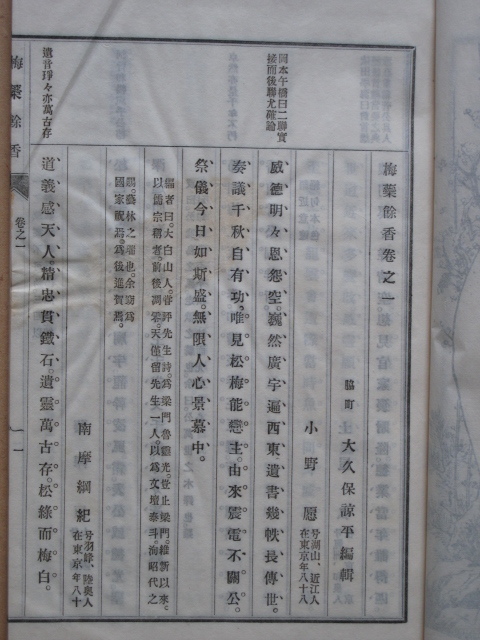 梅蘂餘香卷之一
脇町 大久保諶平編輯
小野愿 号湖山、近江人在東京年八十八
威德明々恩怨空。巍然廣宇遍西東。遺書幾帙長傳世。
奏議千秋自有功。唯見松梅能戀主。由來震電不關公。
祭儀今日如斯盛。無限人心景慕中。
編者曰。大白山人。嘗評先生詩。爲梁門魯靈光。豈止梁門。維新以來。
以儒宗稱者。前後凋零。天僅留先生一人。以爲文壇泰斗。海昭代之
國家祝焉。爲後進賀焉。
南摩綱紀 号羽峰、陸奧人在東京年八十一
道義感天人。精忠貫鐵石。遺靈萬古存。松綠而梅白。
岡本午橋曰二聯實
接而後聯尤確論
遺音琤々亦萬古存
梅蘂餘香
卷之一
一